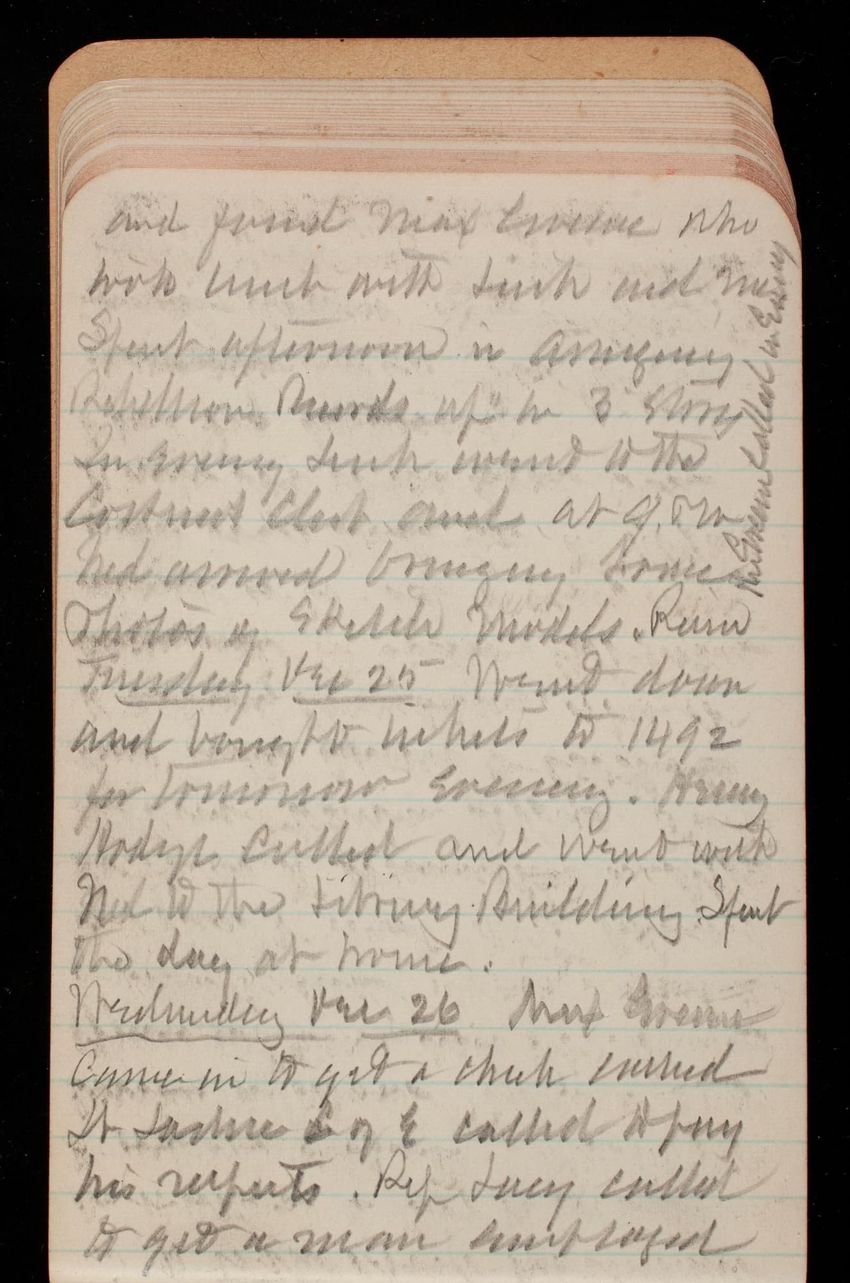 and found Max Greene who
took lunch with Link and me
Spent afternoon in arranging
Rebellion Records up in 3 story
In evening Link went to the
Cosmos Club and at 9.
Ned arrived bringing some
Photos of Sketch Models. Rain
Tuesday Dec 25 Went down
and bought tickets to 1492
for tomorrow Evening. Henry
Hodge Called and went with
Ned to the Library Building. Spent
the day at home.
Wednesday Dec 26 Max Greene
came in to get a check cashed
Lt C of E called to pay
his respects. Rep Lacey called
to get a man employed
Mr Greene called in Evening